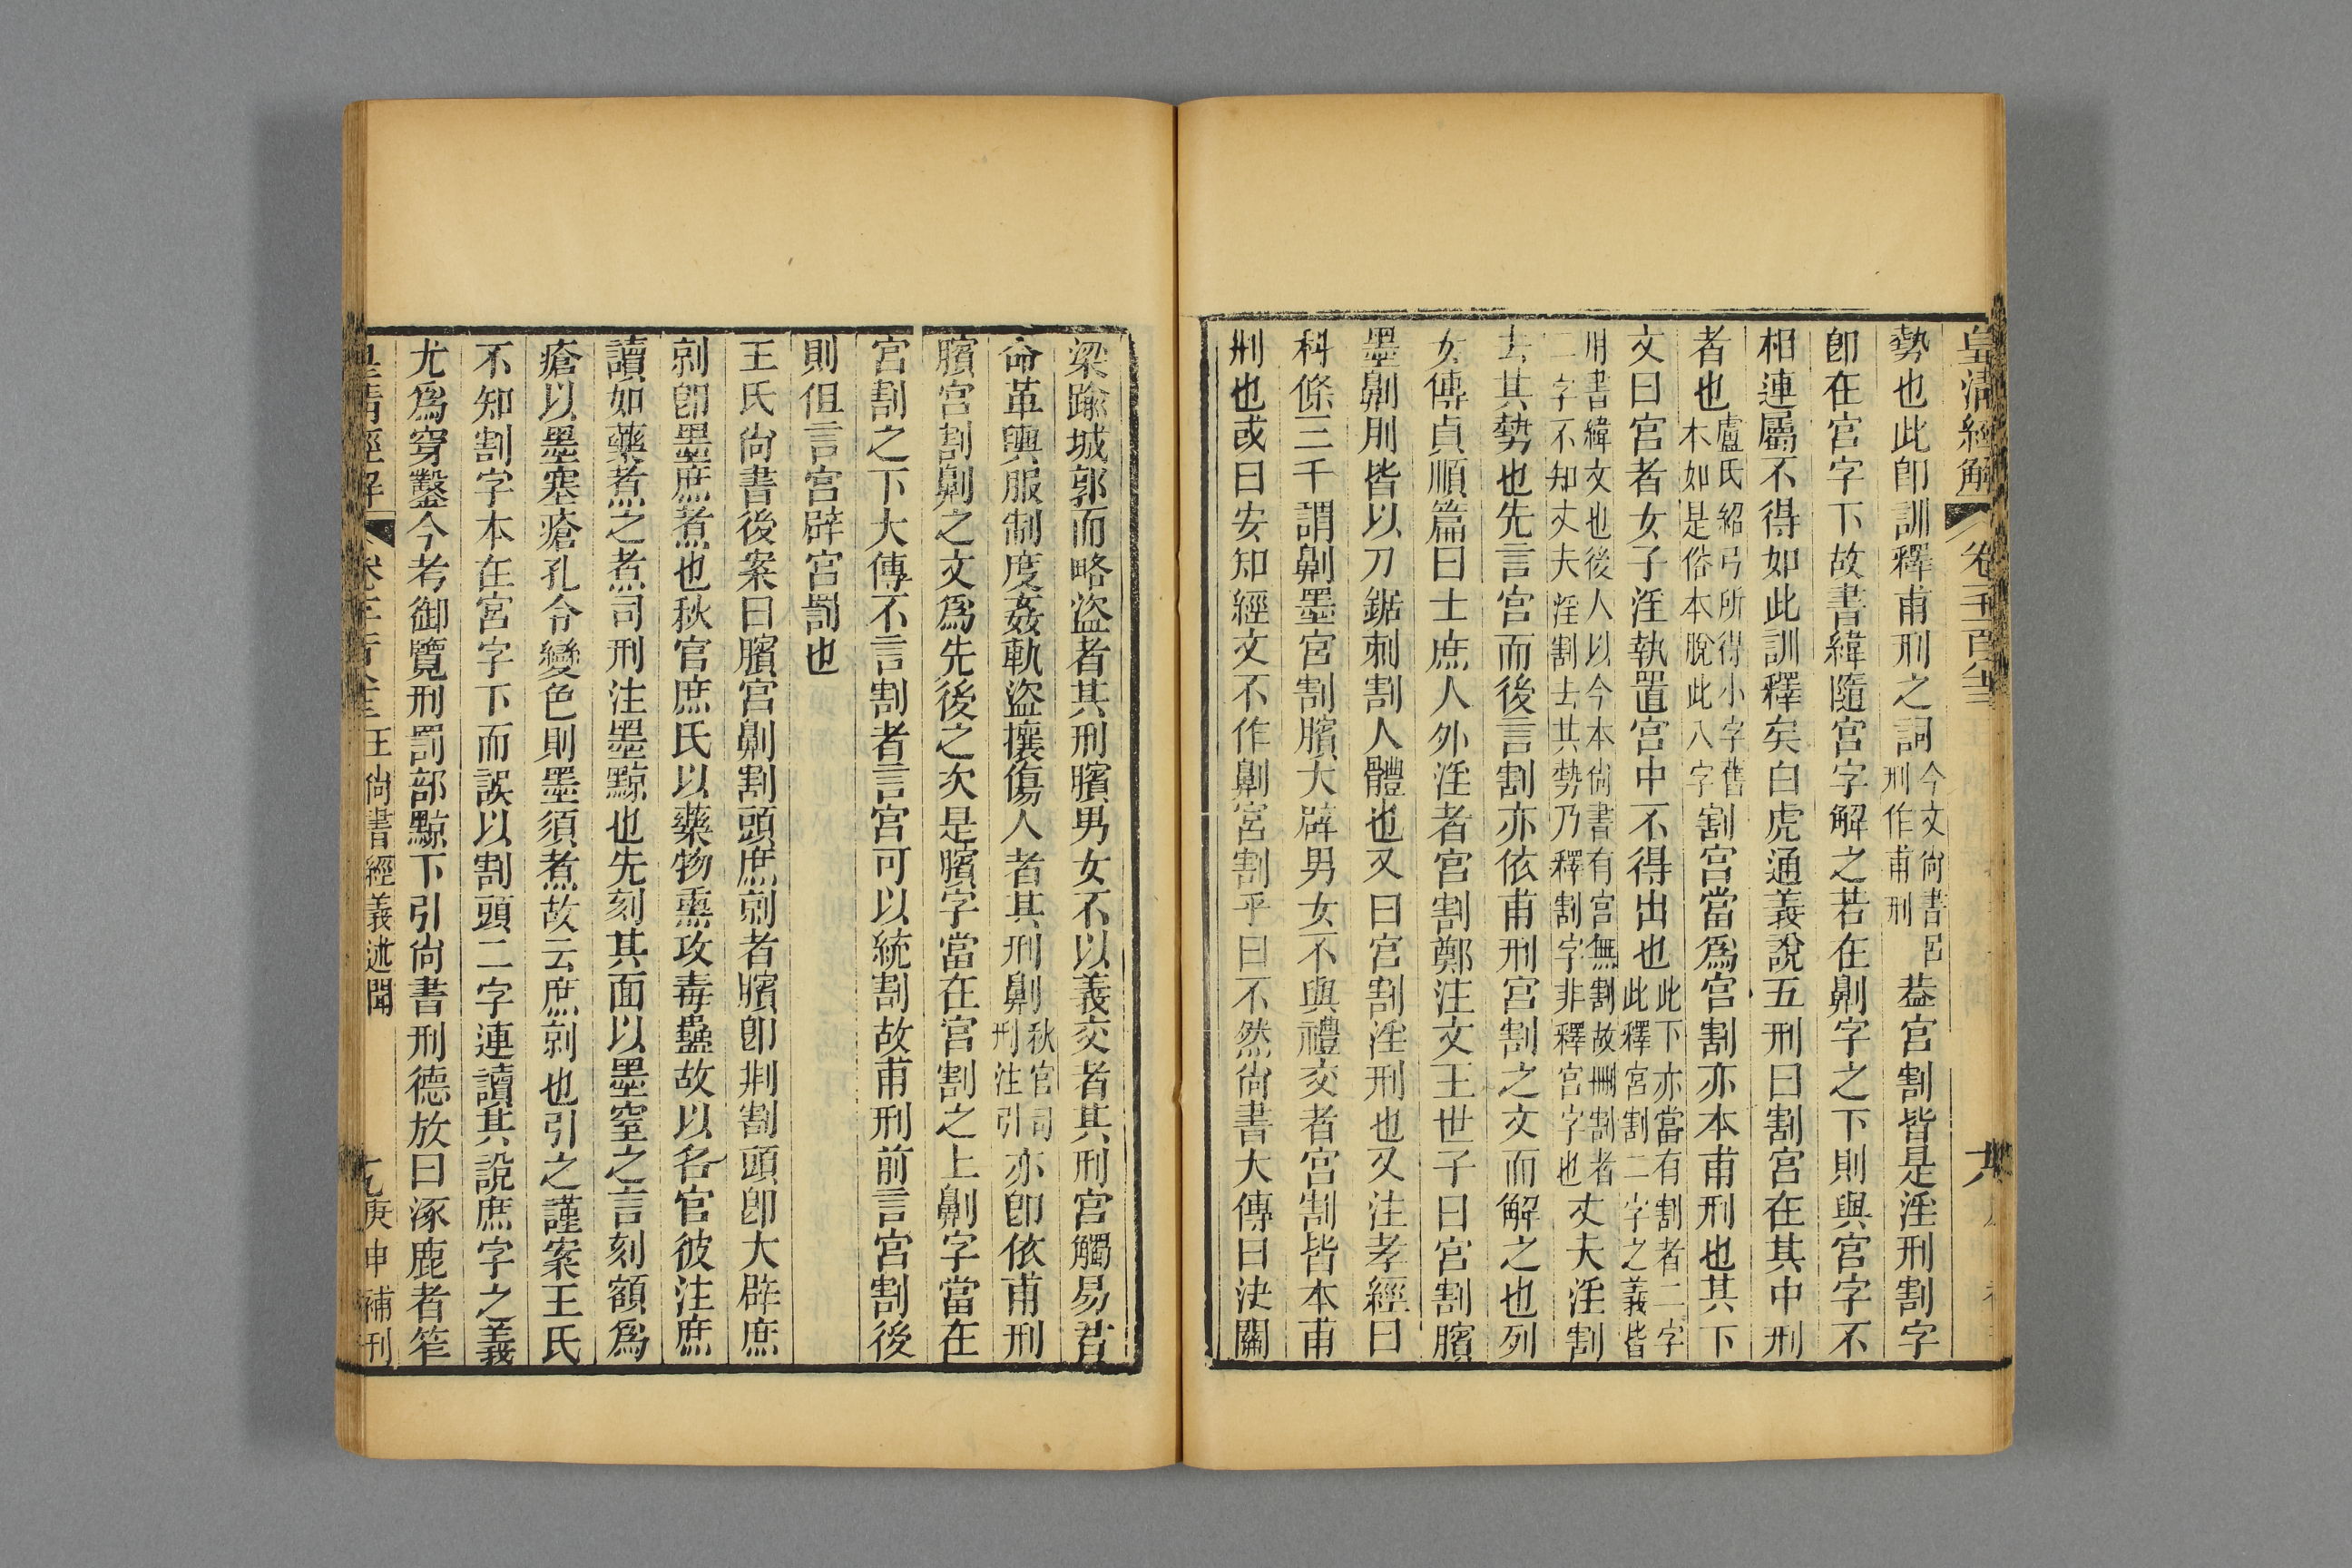 皇清經解 卷千一百八十二 大
勢也此卽訓釋甫刑之詞今文尙書呂刑作甫刑葢宮割皆是淫刑割字
卽在宮字下故書緯隨宮字解之若在劓字之下則與宮字不
相連屬不得如此訓釋矣白虎通義說五刑曰割宮在其中刑
者也盧氏紹弓所得小字舊本如是俗本脫此八字割宮當爲宮割亦本甫刑也其下
文曰宮者女子淫執置宮中不得出也此下亦當有割者二字此釋宮割二字之義皆
用書緯文也後人以今本尙書有宮無割故刪割者二字不知丈夫淫割去其勢乃釋割字非釋宮字也丈夫淫割
去其勢也先言宮而後言割亦依甫刑宮割之文而解之也列
女傳貞順篇曰士庶人外淫者宮割鄭注文王世子曰宮割臏
墨劓刖皆以刀鋸刺割人體也又曰宮割淫刑也又注孝經曰
科條三千謂劓墨宮割臏大辟男女不與禮交者宮割皆本甫
刑也或曰安知經文不作劓宮割乎曰不然尙書大傳曰決關
梁踰城郭而略盜者其刑臏男女不以義交者其刑宮觸易君
命革輿服制度姦軌盜攘傷人者其刑劓秋官司刑注引亦卽依甫刑
臏宮割劓之文爲先後之次是臏字當在宮割之上劓字當在
宮割之下大傳不言割者言宮可以統割故甫刑前言宮割後
則但言宮辟宮罰也
王氏尙書後案曰臏宮劓割頭庶剠者臏卽刖割頭卽大辟庶
剠卽墨庶煮也秋官庶氏以藥物熏攻毒蠱故以名官彼注庶
讀如藥煮之煮司刑注墨黥也先刻其面以墨窒之言刻額爲
瘡以墨塞瘡孔令變色則墨須煮故云庶剠也引之謹案王氏
不知割字本在宮字下而誤以割頭二字連讀其說庶字之義
尤爲穿鑿今考御覽刑罰部黥下引尙書刑德放曰涿鹿者笮
皇清經解 王尙書經義述聞 九 庚申補刊